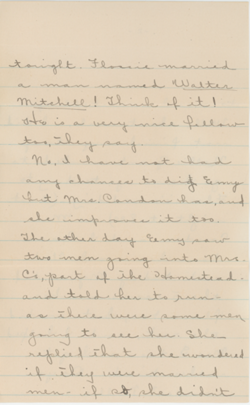 tonight. Flossie married
a man named Walter
Mitchell! Think of it!
He is a very nice fellow
too, they say.
No, I have not had
any chances to dig Emy
but Mrs. Condon has, and
she improves it too.
The other day Emy saw
two men going into Mrs.
C's, part of the Homestead
and told her to run-
as there were some men
going to see her. She
replied that she wondered
if they were married
men- if so, she didn't